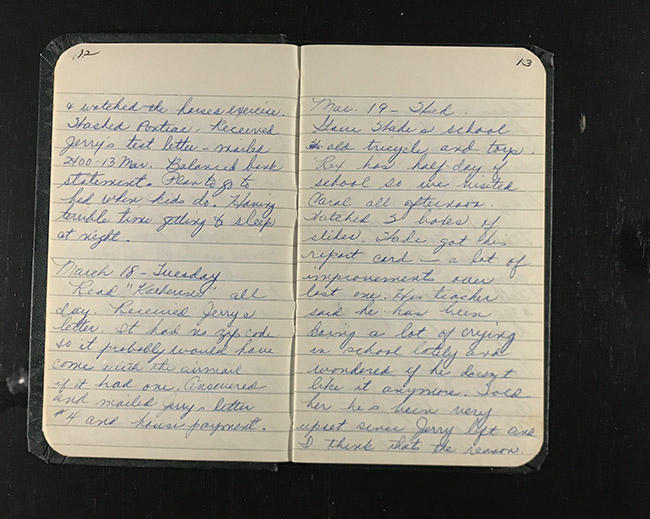 12
& watched the horses exercise.
Washed Pontiac. Received
Jerry's test letter - mailed
2400-13 Mar. Balanced bank
statement. Plan to go to
bed when kids do. Having
terrible time getting to sleep
at night.
March 18 - Tuesday
Read "Katherine" all
day. Received Jerry's
letter. It had no zip code
so it probably would have
come with the airmail
if it had one. Answered
and mailed Jerry's letter
#4 and house payment.
13
Mar. 19 - Wed.
Gave Wade's school
old tricycle and toys.
Rex has half-day of
school so we visited
Carol all afternoon.
Watched 3 boxes of
slides. Wade got his
report card - a lot of
improvements over
last one. His teacher
said he has been
doing a lot of crying
in school lately and
wondered if he doesn't
like it anymore. Told
her he's been very
upset since Jerry left and
I think that's the reason.